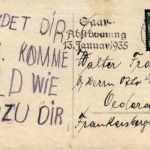 DET DIR
KOMME
LD WIE
ZU DIR
Saar-
Abstimmung
13. Januar 1935
Walter
Herrn Otto
Oederan
Frankenberger